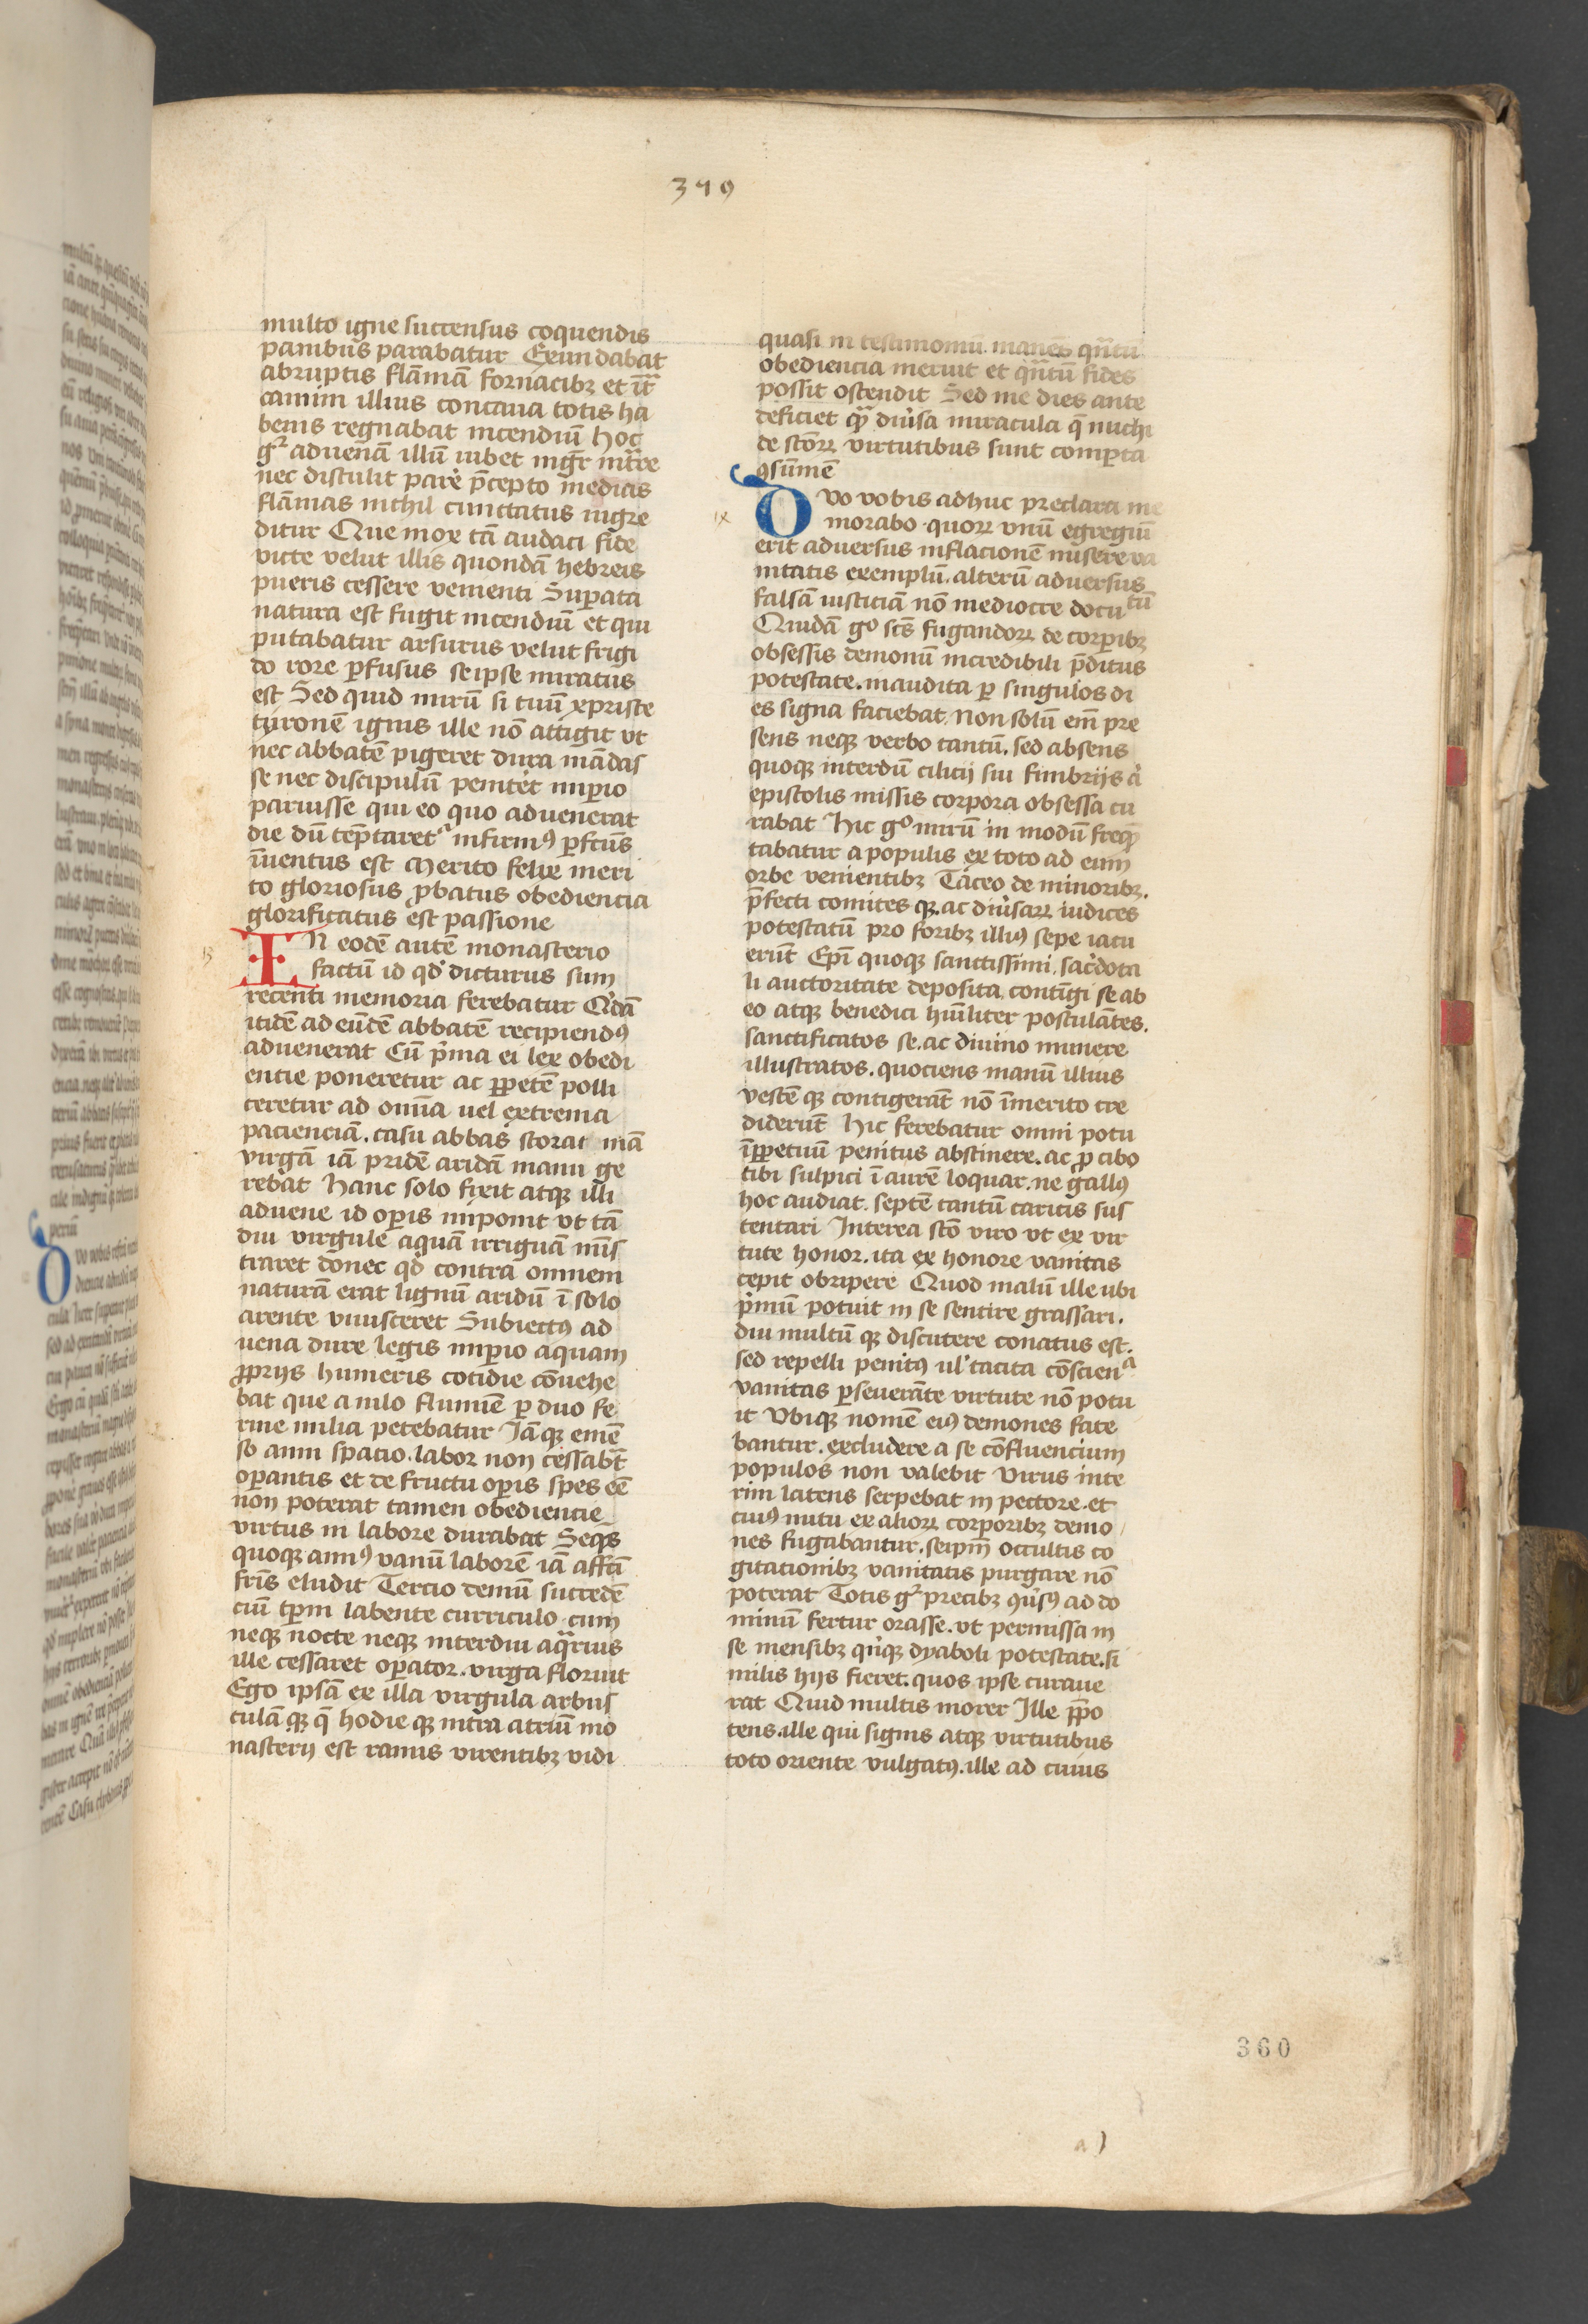 379
multo igne succensus coquendis
panibus parabatur Exundabat
abruptis flāmā fornacibꝫ et ītᷓ
camini illius concaua totis ha
benis regnabat incendiū Hoc
gͬ aduenā illū iubet mgr̄ intᷓre
nec distulit parē p̄cepto medias
flāmas nichil cunctatus ingre
ditur Que mox tā audaci fide
victe velut illis quondā hebreis
pueris cessere venienti Suꝑata
natura est fugit incendiū et qui
putabatur arsurus velut frigi
do rore ꝑfusus seipse miratus
est Sed quid mirū si tuū xpriste
tyronē ignis ille nō attigit vt
nec abbatē pigeret dura mādas
se nec discipulū penitet imꝑio
paruisse qui eo quo aduenerat
die dū temptaretᷣ infirmꝰ ꝑfcūs
īuentus est Merito felix meri
to gloriosus ꝓbatus obediencia
glorificatus est passione
IN eodē autē monasterio
factū id qd̓ dicturus sum
recenti memoria ferebatur Qͥdā
itidē ad eūdē abbatē recipiendꝰ
aduenerat Cū p̓ma ei lex obedi
entie poneretur ac ꝑpetē polli
ceretur ad omīa uel extrema
pacienciā. casu abbas storac inā
virgā iā pridē aridā manu ge
rebat Hanc solo fixit atqꝫ illi
aduene id oꝑis imponit vt tā
diu virgule aquā irriguā mīs
traret donec qd̓ contra omnem
naturā erat lignū aridū ī solo
arente viuisceret Subiectꝰ ad
uena dure legis imꝑio aquam
ꝓprijs humeris cotidie cōuehe
bat que a nilo flumīe ꝑ duo fe
rme milia petebatur Iāqꝫ emē
so anni spacio. labor non cessab̄t
oꝑantis et de fructu oꝑis spes eē
non poterat tamen obediencie
virtus in labore durabat Seqn̄s
quoqꝫ annꝰ vanū laborē iā affcī
fr̄is eludit Tercio demū succedē
ciū tꝑm labente curriculo. cum
neqꝫ nocte neqꝫ interdiu aqᷓrius
ille cessaret oꝑator. virga floruit
Ego ipsā ex illa virgula arbus
culā qꝫ q̄ hodie qꝫ intra atriū mo
nasterij est ramis virentibꝫ vidi
quasi in testimoniū manēs qn̄tū
obediencia meruit et qn̄tū fides
possit ostendit Sed me dies ante
deficiet qᷓ diu̓sa miracula q̄ michi
de sctōꝝ virtutibus sunt comꝑta
ꝯsūmē
ix
DVo vobis adhuc preclara me
morabo. quoꝝ vnū egregiū
erit aduersus inflacionē misere va
nitatis exemplū. alterū aduersus
falsā iusticiā nō mediocre docutū
Quidā gͦ scūs fugandoꝝ de corꝑibꝫ
obsessis demonū incredibili p̄ditus
potestate. inaudita ꝑ singulos di
es signa faciebat. Non solū em̄ pre
sens neqꝫ verbo tantū. sed absens
quoqꝫ interdū cilicij sui fimbrijs a̓
epistolis missis corpora obsessa cu
rabat Hic gͦ mirū in modū freqn̄
tabatur a populis ex toto ad eum
orbe venientibꝫ Taceo de minoribꝫ.
p̄fecti comites qꝫ. ac diu̓saꝝ iudices
potestatū pro foribꝫ illiꝰ sepe iacu
erūt Epī quoqꝫ sanctissimi. sac̓dota
li auctoritate deposita, contīgi se ab
eo atqꝫ benedici hūiliter postulātes.
sanctificatos se. ac diuino munere
illustratos. quociens manū illius
vestē qꝫ contigerāt nō īmerito cre
diderūt Hic ferebatur omni potu
īꝑpetuū penitus abstinere. ac ꝓ cibo
tibi sulpici ī aurē loquar. ne gallꝰ
hoc audiat. septē tantū caricis sus
tentari Interea scto̅ viro vt ex vir
tute honor. ita ex honore vanitas
cepit obripere Quod malū ille ubi
p̓mū potuit in se sentire grassari.
diu multū qꝫ discutere conatus est.
sed repelli penitꝰ ul̓ tacita cōscienᵃ
vanitas ꝑseuerāte virtute nō potu
it Vbiqꝫ nomē eiꝰ demones fate
bantur. excludere a se cōfluencium
populos non valebit Virus inte
rim latens serpebat in pectore. et
cuiꝰ nutu ex alioꝝ corporibꝫ demo
nes fugabantur. seipm̄ occultis co
gitacionibꝫ vanitatis purgare nō
poterat Totis gͬ precibꝫ ꝯu̓sꝰ ad do
minū fertur orasse. vt permissa in
se mensibꝫ qͥnqꝫ dyaboli potestate. si
milis hijs fieret. quos ipse curaue
rat Quid multis morer Ille p̄po
tens. ille qui signis atqꝫ virtutibus
toto oriente vulgatꝰ. ille ad cuius
360